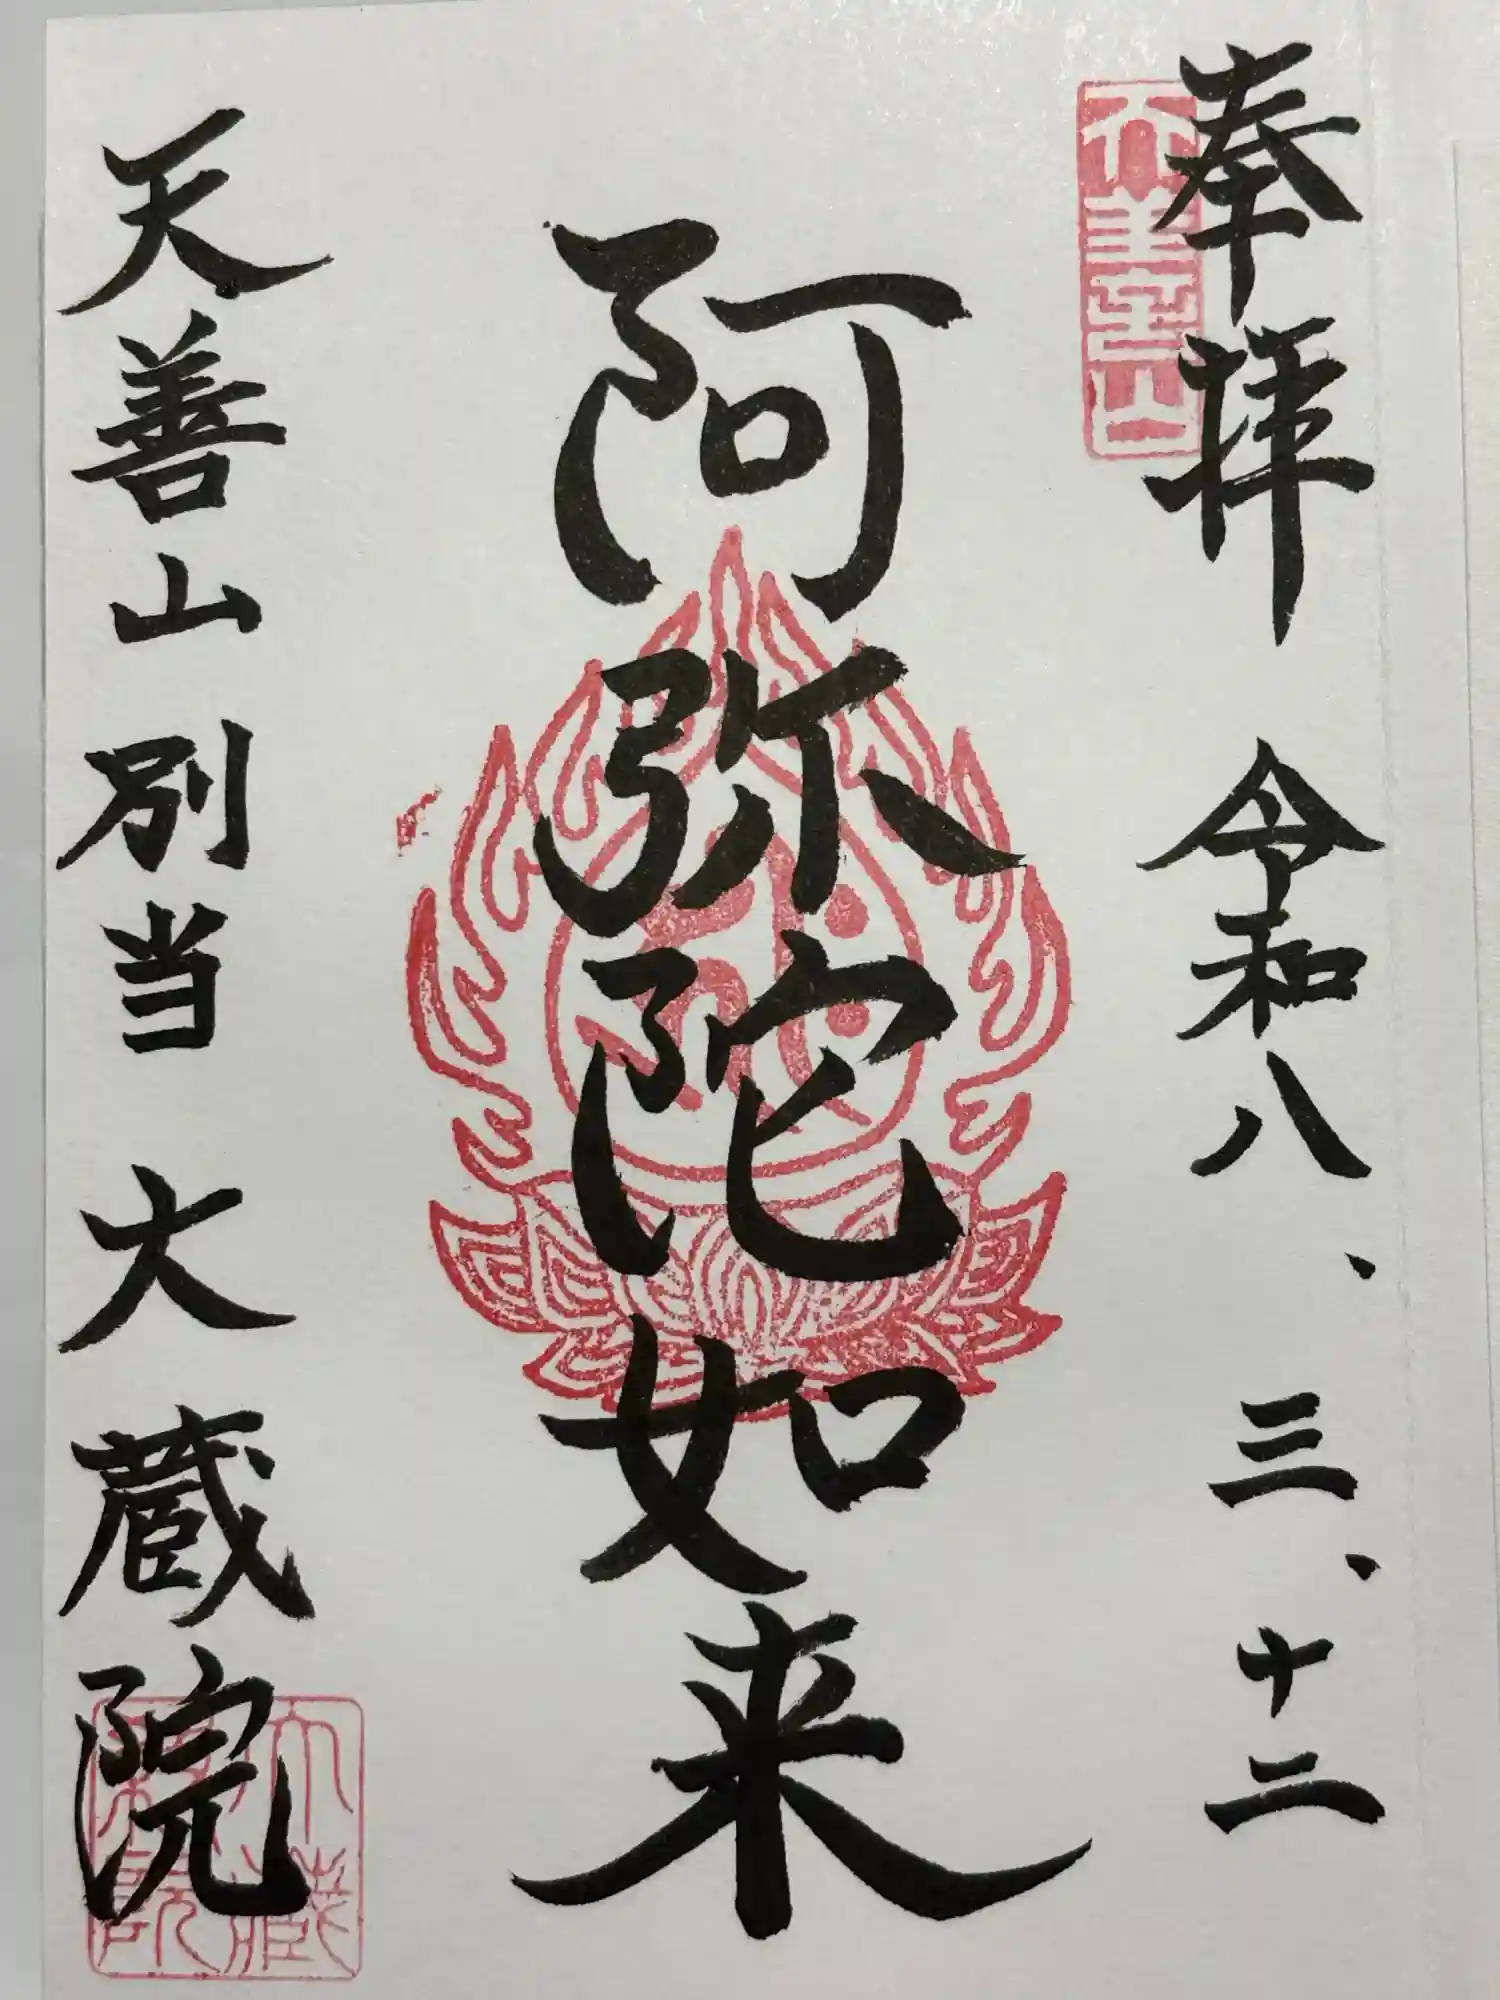 奉拝 令和八、三、十二
阿弥陀如来
天善山 別当 大蔵院